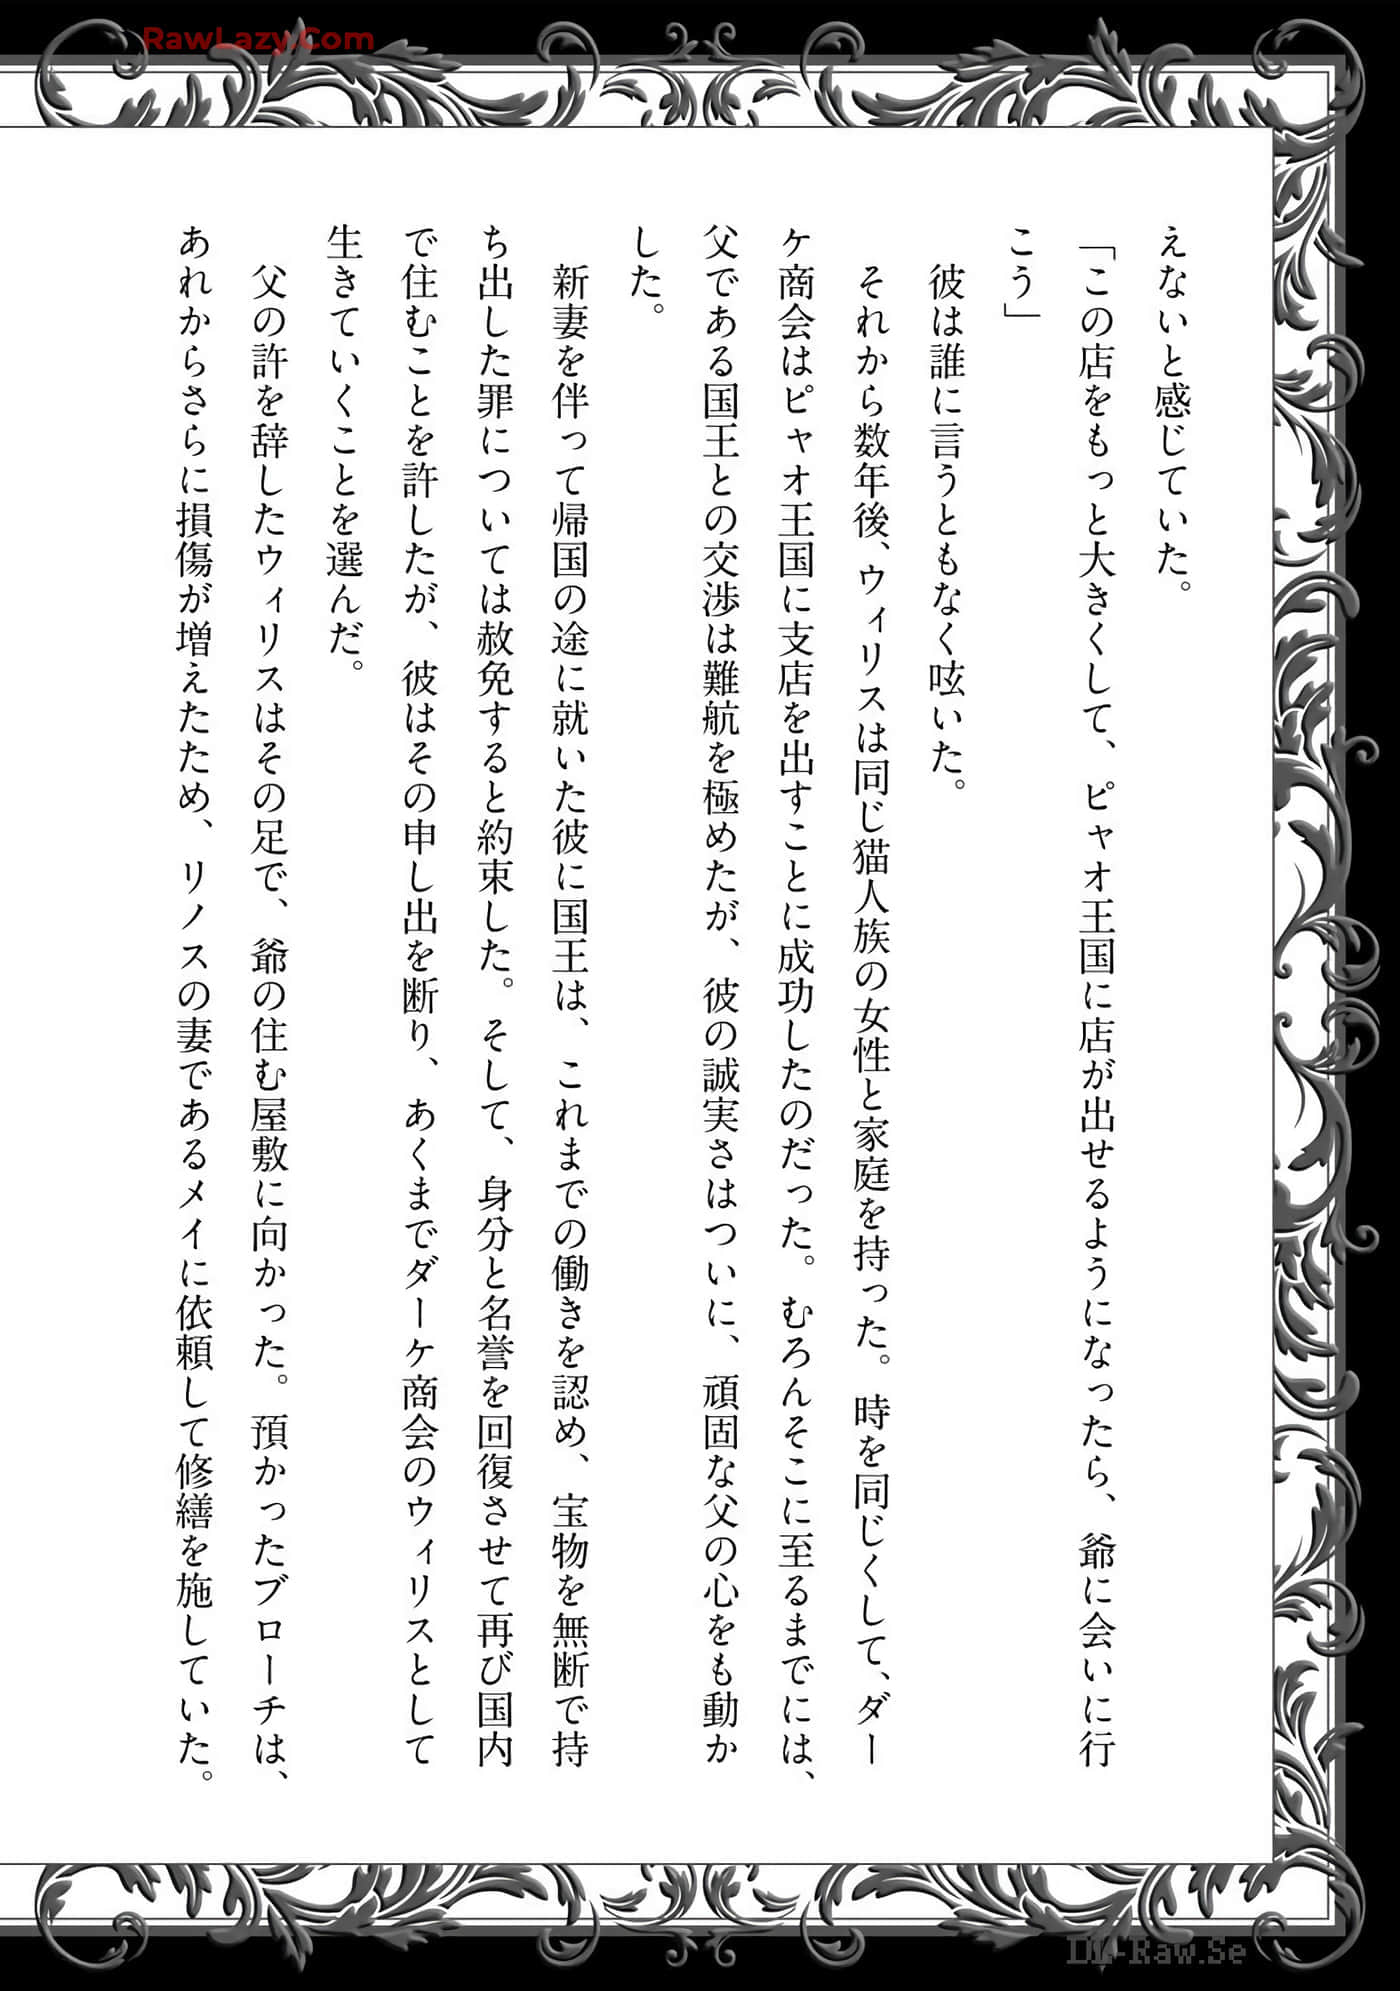 RawLazy.Com
えないと感じていた。
「この店をもっと大きくして、ピャオ王国に店が出せるようになったら、爺に会いに行
こう」
彼は誰に言うともなく呟いた。
それから数年後、ウィリスは同じ猫人族の女性と家庭を持った。時を同じくして、ダー
ケ商会はピャオ王国に支店を出すことに成功したのだった。むろんそこに至るまでには、
父である国王との交渉は難航を極めたが、彼の誠実さはついに、頑固な父の心をも動か
した。
新妻を伴って帰国の途に就いた彼に国王は、これまでの働きを認め、宝物を無断で持
ち出した罪については赦免すると約束した。そして、身分と名誉を回復させて再び国内
で住むことを許したが、彼はその申し出を断り、あくまでダーケ商会のウィリスとして
生きていくことを選んだ。
父の許を辞したウィリスはその足で、爺の住む屋敷に向かった。預かったブローチは、
あれからさらに損傷が増えたため、リノスの妻であるメイに依頼して修繕を施していた。
DL-Raw.Se